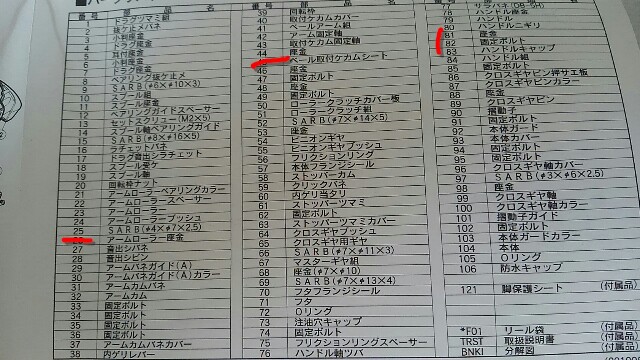 番号 部品名
2 ドラグツマミ組
3 抜ケ止メバネ
4 小判座金
5 ドラグ座金
5 耳付座金
6 小判座金
7 ドラグ座金
8 ベアリング抜ケ止メ
9 SARB(φ6×φ10×3)
10 スプール組
11 スプール座金
12 ベアリングガイドスペーサー
13 セットスクリュー(M2×5)
14 スプール軸ベアリングガイド
15 SARB(φ8×φ16×5)
16 ラチェットバネ
17 ドラグ音出シラチェット
18 スプール受ケ
19 スプール軸
20 回転枠ナット
21 アームローラーベアリングカラー
22 アームローラースペーサー
23 アームローラー
24 アームローラーブッシュ
25 SARB(φ4×φ7×2.5)
26 アームローラー座金
27 音出シバネ
28 音出シピン
29 アームバネガイド(A)
30 アームバネガイド(A)カラー
31 アームカムバネ
32 アームカム
33 固定ボルト
34 固定ボルト
35 固定ボルト
36 固定ボルト
37 アームカムバネカバー
38 内ゲリレバー
番号 部品名
39 座金
40 取付ケカムカバー
41 ベールアーム組
42 アーム固定軸
43 取付ケカム固定軸
44 座金
ベール取付ケカムシート
46 座金
47 固定ボルト
48 座金
49 固定ボルト
50 ローラークラッチカバー板
51 ローラークラッチ組
52 SARB(φ7×φ14×5)
53 座金
54 ピニオンギヤ
55 ピニオンギヤブッシュ
56 フリクションリング
57 本体フランジシール
58 ストッパーカム
59 クリックバネ
60 内ゲリ当タリ
61 ストッパーツマミ
62 固定ボルト
63 ストッパーツマミカバー
64 クロスギヤブッシュ
65 クロスギヤ用ギヤ
66 SARB(φ7×φ11×3)
67 マスターギヤ組
68 座金(φ7×φ10)
69 SARB(φ7×φ13×4)
70 フタフランジシール
71 フタ
72 Oリング
73 注油穴キャップ
74 固定ボルト
75 フリクションリングスペーサー
76 ハンドル軸ツバ
78 ハンドル座金
79 ハンドル
80 ハンドルニギリ
81 座金
82 固定ボルト
83 ハンドルキャップ
84 ハンドル組
85 固定ボルト
86 クロスギヤピン押サエ板
87 クロスギヤピンカラー
88 座金
89 クロスギヤピン
90 摺動子
91 固定ボルト
92 本体ガード
93 本体カバー
94 固定ボルト
95 固定ボルト
96 クロスギヤ軸カバー
97 SARB(φ3×φ6×2.5)
98 座金
99 クロスギヤ軸
100 クロスギヤ軸カラー
101 摺動子ガイド
102 固定ボルト
103 本体ガードカラー
104 本体
105 Oリング
106 防水キャップ
121 脚保護シート (付属品)
*F01 リール袋 (付属品)
TRST 取扱説明書 (付属品)
BNK1 分解図 (付属品)